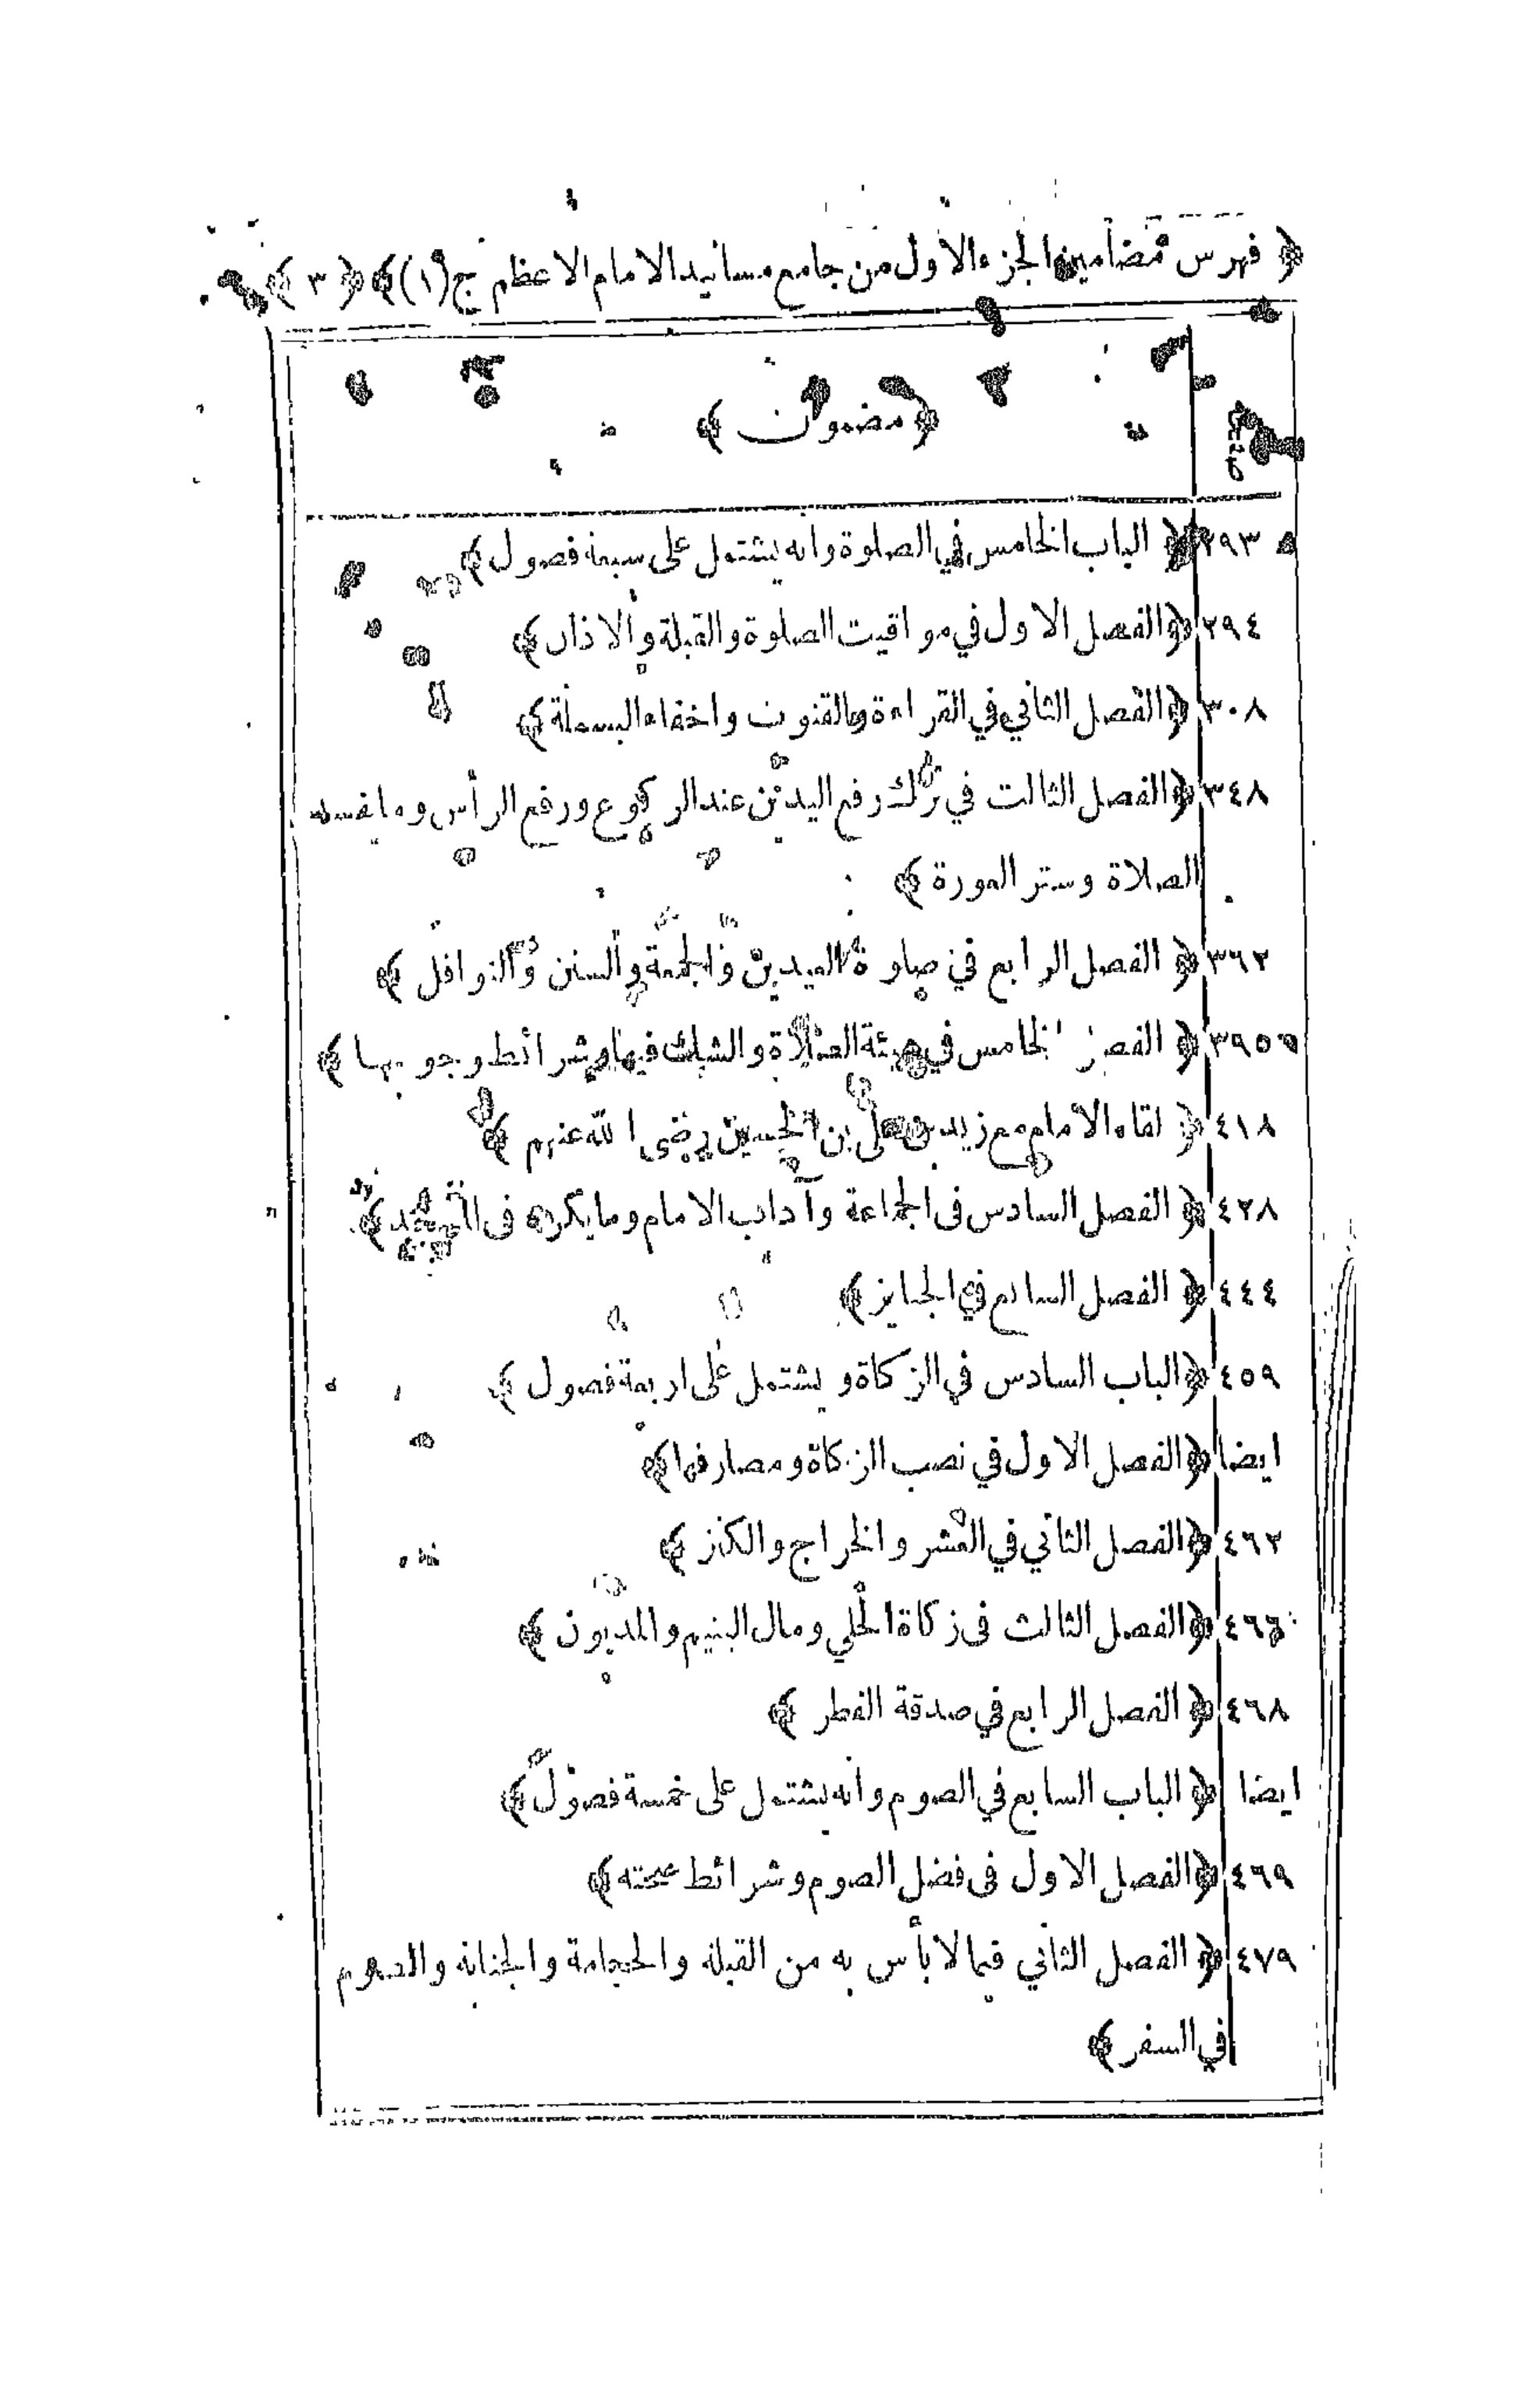 ﴿ فهرس مضامين الجزء الاول من جامع مسانيد الامام الاعظم ج (١) ﴾ ﴿ ٣ ﴾
صفحة ﴿ مضمون ﴾
٢٩٣ ﴿ الباب الخامس في الصلوة وانه يشتمل على سبعة فصول ﴾
٢٩٤ ﴿ الفصل الاول في مواقيت الصلوة والقبلة والاذان ﴾
٣٠٨ ﴿ الفصل الثاني في القراءة والقنوت واخفاء البسملة ﴾
٣٤٨ ﴿ الفصل الثالث في ترك رفع اليدين عند الركوع ورفع الرأس وما يفسد
الصلاة وستر العورة ﴾
٣٦٢ ﴿ الفصل الرابع في صلوة العيدين والجمعة والسنن والنوافل ﴾
٣٩٥ ﴿ الفصل الخامس في هيئة الصلاة والشك فيها وشرائط وجوبها ﴾
٤١٨ ﴿ لقاء الامام مع زيد بن على بن الحسين رضى الله عنهم ﴾
٤٢٨ ﴿ الفصل السادس فى الجماعة وآداب الامام وما يكره فى المسجد ﴾
٤٤٤ ﴿ الفصل السابع في الجنايز ﴾
٤٥٩ ﴿ الباب السادس في الزكاة و يشتمل على اربعة فصول ﴾
ايضا ﴿ الفصل الاول في نصب الزكاة ومصارفها ﴾
٤٦٢ ﴿ الفصل الثاني في العشر والخراج والكنز ﴾
٤٦٦ ﴿ الفصل الثالث فى زكاة الحلي ومال اليتيم والمديون ﴾
٤٦٨ ﴿ الفصل الرابع في صدقة الفطر ﴾
ايضا ﴿ الباب السابع في الصوم وانه يشتمل على خمسة فصول ﴾
٤٦٩ ﴿ الفصل الاول فى فضل الصوم وشرائط صحته ﴾
٤٧٩ ﴿ الفصل الثاني فيما لا بأس به من القبلة والحجامة والجنابة والصوم
في السفر ﴾